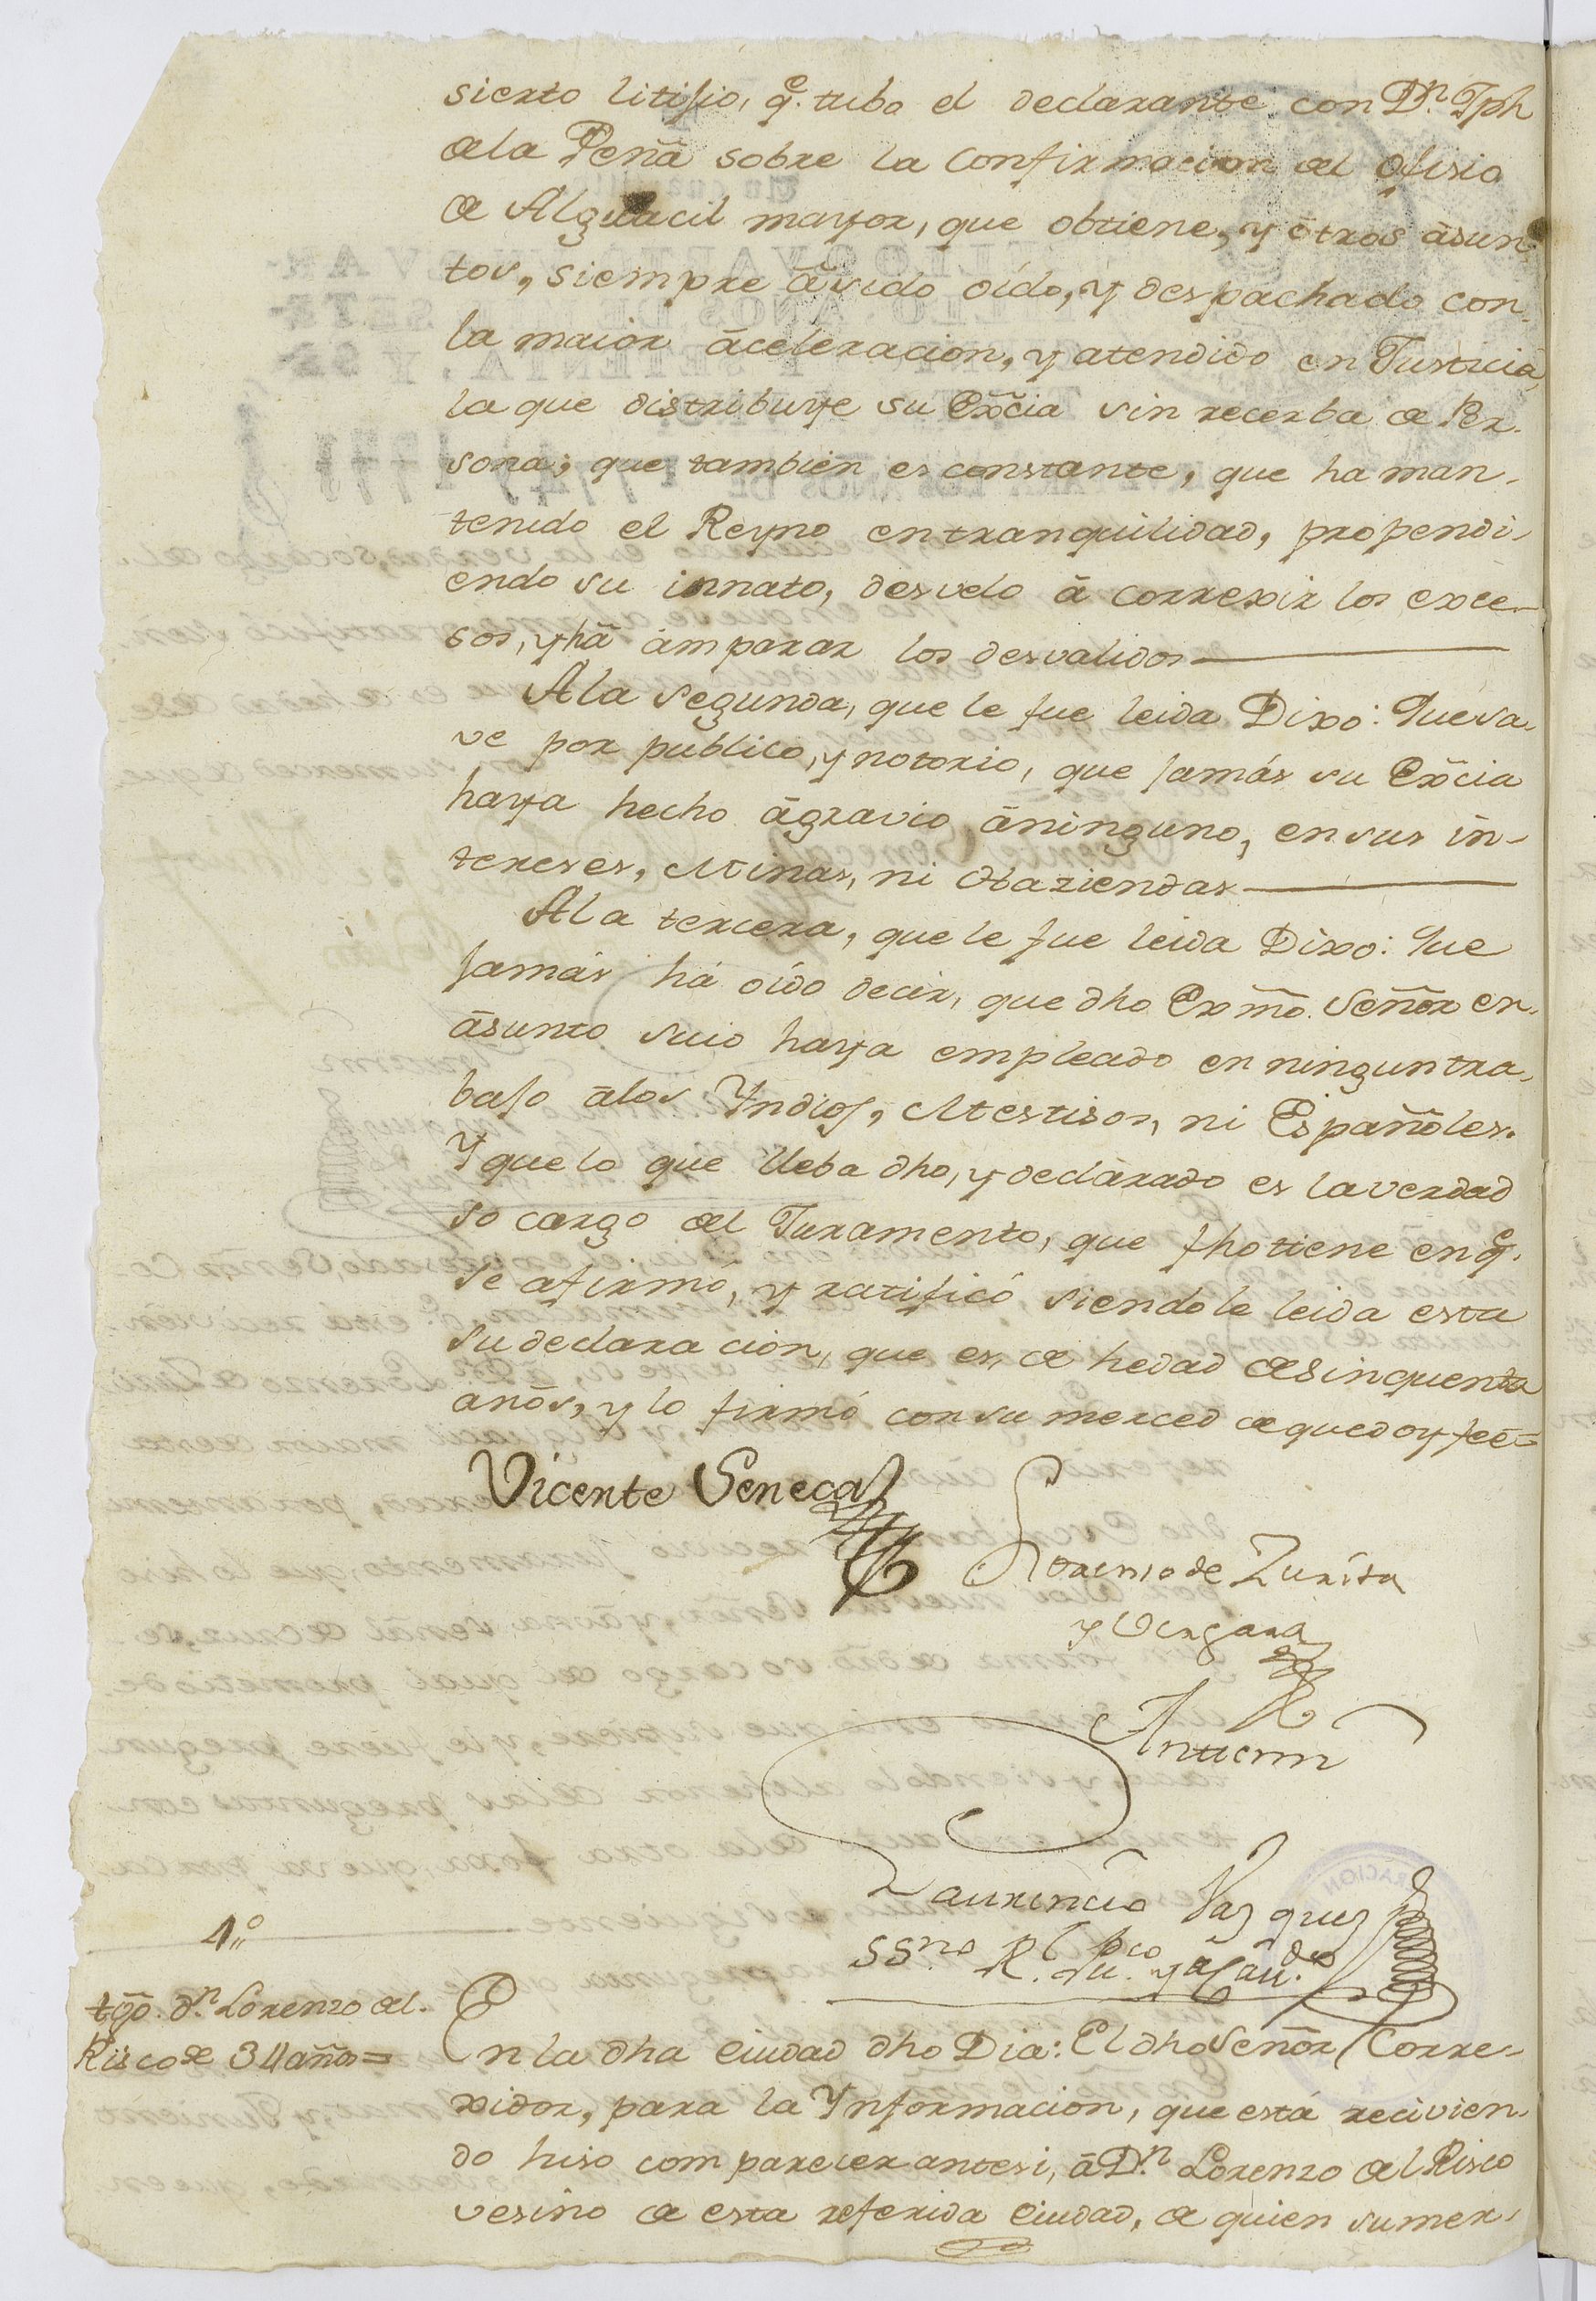 sierto litijio, q.e tubo el declarante con D.n Jph
de la Peña sobre la Confirmacion del ofisio
de Alguacil mayor, que obtiene, y ótros ásun-
tos, siempre á sido oído, y despachado con
la maior áceleracion, y atendido en Justicia,
la que distribuye su Exc̃ia sin recerba de Per-
sona; que tambien es constante, que ha man-
tenido el Reyno en tranquilidad, propendi-
endo su innato, desvelo á correxir los exce-
sos, y há ámparar los desvalidos
A la segunda, que le fue leida Dixo: Que sa-
ve por publico, y notorio, que jamás su Exc̃ia
haya hecho ágravio áninguno, en sus in-
tereses, Minas, ni Haziendas
A la tercera, que le fue leida Dixo: Que
jamás há oído decir, que dho Exmo. Señor en
ásunto suio haya empleado en ningun tra-
bajo álos Yndios, Mestisos, ni Españoles.
Y que lo que lleba dho, y declarado es la verdad
so cargo del Juramento, que fho tiene en q.e
se afirmó, y ratificó siendole leida esta
su declaracion, que es de hedad de sinquenta
años, y lo firmó con su merced de que doy fee=
Vicente Seneca
Lorenso de Zurita
y Vergara
Antemi
Laurencio Vazquez
SS.no R.l pu.co y de Cav.do
4.º
tgo. d.n Lorenzo del
Risco de 34 años=
En la dha Ciudad dho Dia: El dho Señor Corre-
xidor, para la Ynformacion, que está recivien-
do hiso comparecer antesi, á D.n Lorenzo del Risco
vesino de esta referida Ciudad, de quien su mer-